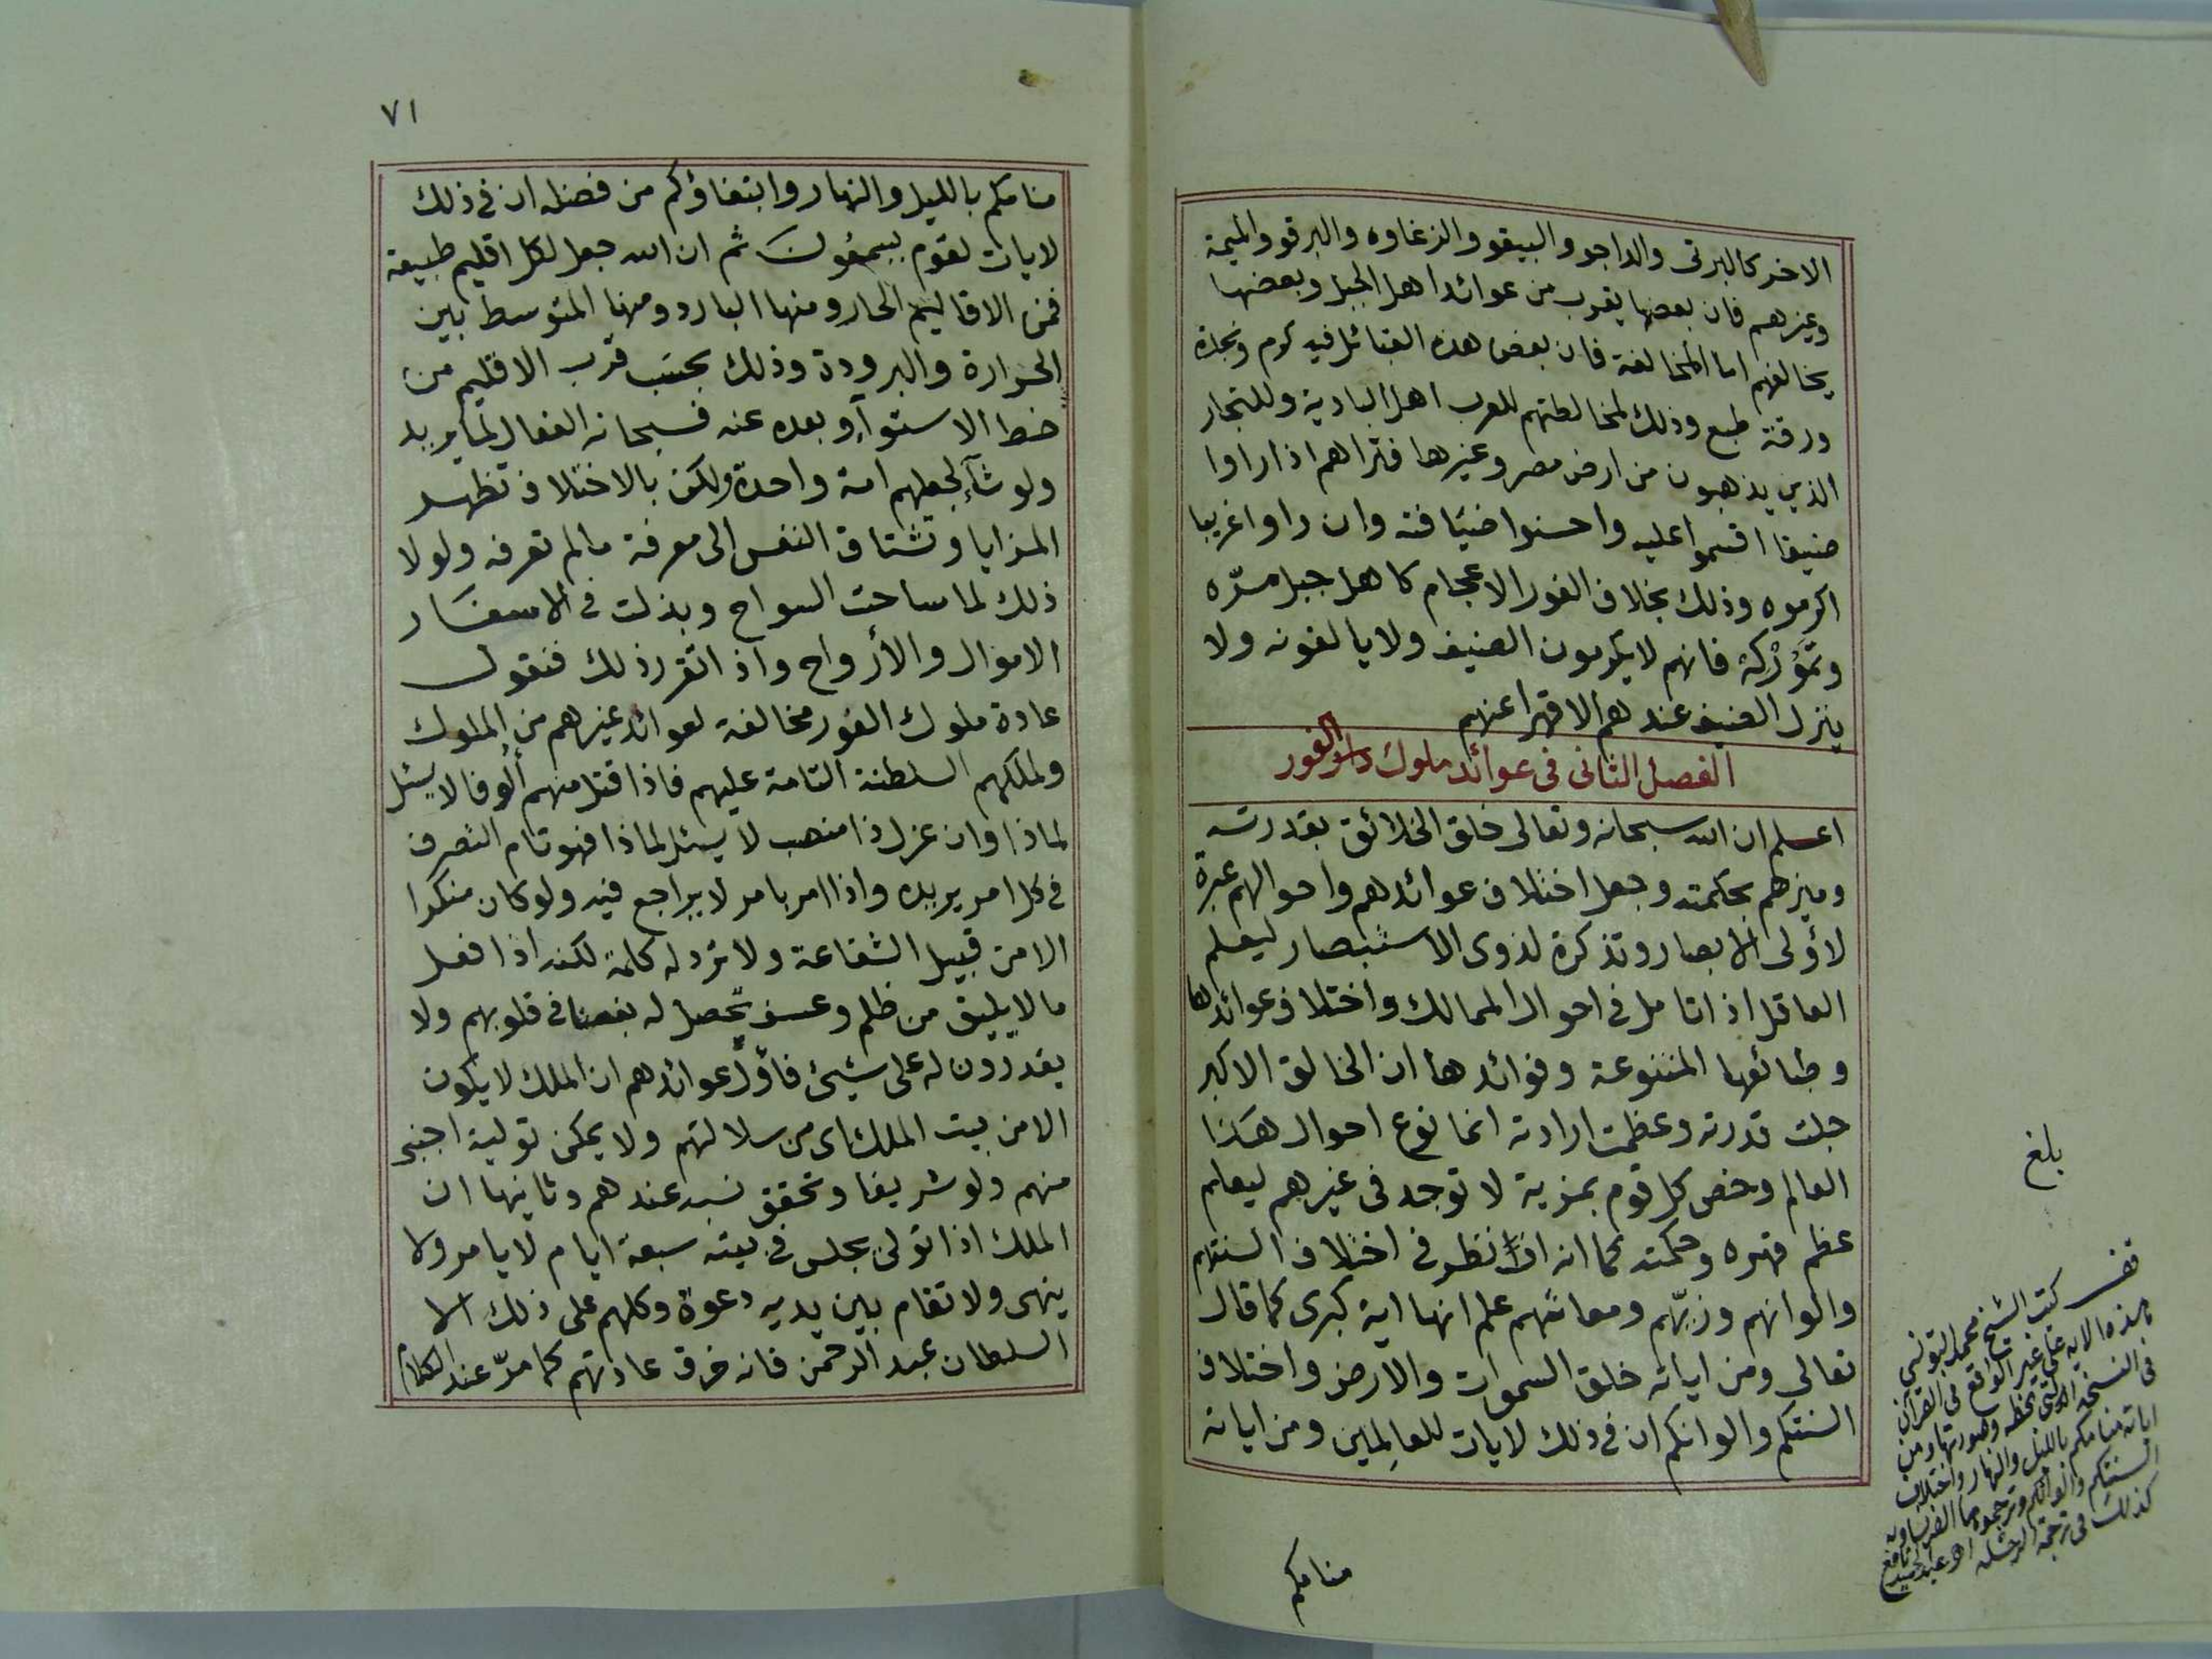 الاخر كالبرتى والداجو والبيقو والزغاوه والبرقو والميمة
وغيرهم فان بعضها يقرب من عوائد اهل الجبل وبعضها
يخالفهم اما المخالفة فان بعض هذه القبائل فيه كرم ونجدة
ورقة طبع وذلك لمخالطتهم للعرب اهل البادية وللتجار
الذين يذهبون من ارض مصر وغيرها فتراهم اذا راوا
ضيفا اقسموا عليه واحسنوا ضيافته وان راوا غريبا
اكرموه وذلك بخلاف الفور الاعجام كاهل جبل مرّه
وتَمُوْرْكَهْ فانهم لا يكرمون الضيف ولا يالفونه ولا
ينزل الضيف عندهم الا قهرا عنهم
الفصل الثانى فى عوائد ملوك الفور
اعلم ان الله سبحانه وتعالى خلق الخلائق بقدرته
وميزهم بحكمته وجعل اختلاف عوائدهم واحوالهم عبرة
لأولى الابصار وتذكرة لذوى الاستبصار ليعلم
العاقل اذا تامل فى احوال الممالك واختلاف عوائدها
وطبائعها المتنوعة وفوائدها ان الخالق الاكبر
جلت قدرته وعظمت ارادته انما نوع احوال هذا
العالم وخص كل قوم بمزية لا توجد فى غيرهم ليعلم
عظم قهره وحكمته كما انه اذا نظر فى اختلاف السنتهم
والوانهم وزيّهم ومعاشهم علم انها اية كبرى كما قال
تعالى ومن اياته خلق السموات والارض واختلاف
السنتكم والوانكم ان فى ذلك لايات للعالِمين ومن اياته
منامكم
بلغ
كتب الشيخ محمد التونسى
هذه الاية على غير الواقع فى القرآن
فى النسخة التى بخطه وصورتها ومن
اياته منامكم بالليل والنهار واختلاف
السنتكم والوانكم وترجموها الفرنساويه
كذلك فى ترجمة الرحلة
٧١
منامكم بالليل والنهار وابتغاؤكم من فضله ان فى ذلك
لايات لقوم يسمعون ثم ان الله جعل لكل اقليم طبيعة
فمن الاقاليم الحار ومنها البارد ومنها المتوسط بين
الحرارة والبرودة وذلك بحسَب قرب الاقليم من
خط الاستوآء وبعده عنه فسبحانه الفعال لما يريد
ولو شآء لجعلهم امة واحدة ولكن بالاختلاف تظهر
المزايا وتشتاق النفس الى معرفة ما لم تعرفه ولولا
ذلك لما ساحت السواح وبذلت فى الاسفار
الاموال والأرواح واذ اتقرر ذلك فنقول
عادة ملوك الفور مخالفة لعوائد غيرهم من الملوك
ولملكهم السلطنة التامة عليهم فاذا قتل منهم ألوفا لا يسئل
لماذا وان عزل ذا منصب لا يسئل لماذا فهو تام التصرف
فى كل امر يريده واذا امر بامر لا يراجع فيه ولو كان منكرا
الا من قبيل الشفاعة ولا ترد له كلمة لكنه اذا فعل
ما لا يليق من ظلم وعسف يحصل له بغضا فى قلوبهم ولا
يقدرون له على شيئ فأوّل عوائدهم ان الملك لا يكون
الا من بيت الملك اى من سلالتهم ولا يمكن تولية اجنبى
منهم ولو شريفا وتحقق نسبه عندهم وثانيها ان
الملك اذا تولى يجلس فى بيته سبعة ايام لا يامر ولا
ينهى ولا تقام بين يديه دعوة وكلهم على ذلك الا
السلطان عبد الرحمن فانه خرق عادتهم كما مرّ عند الكلام